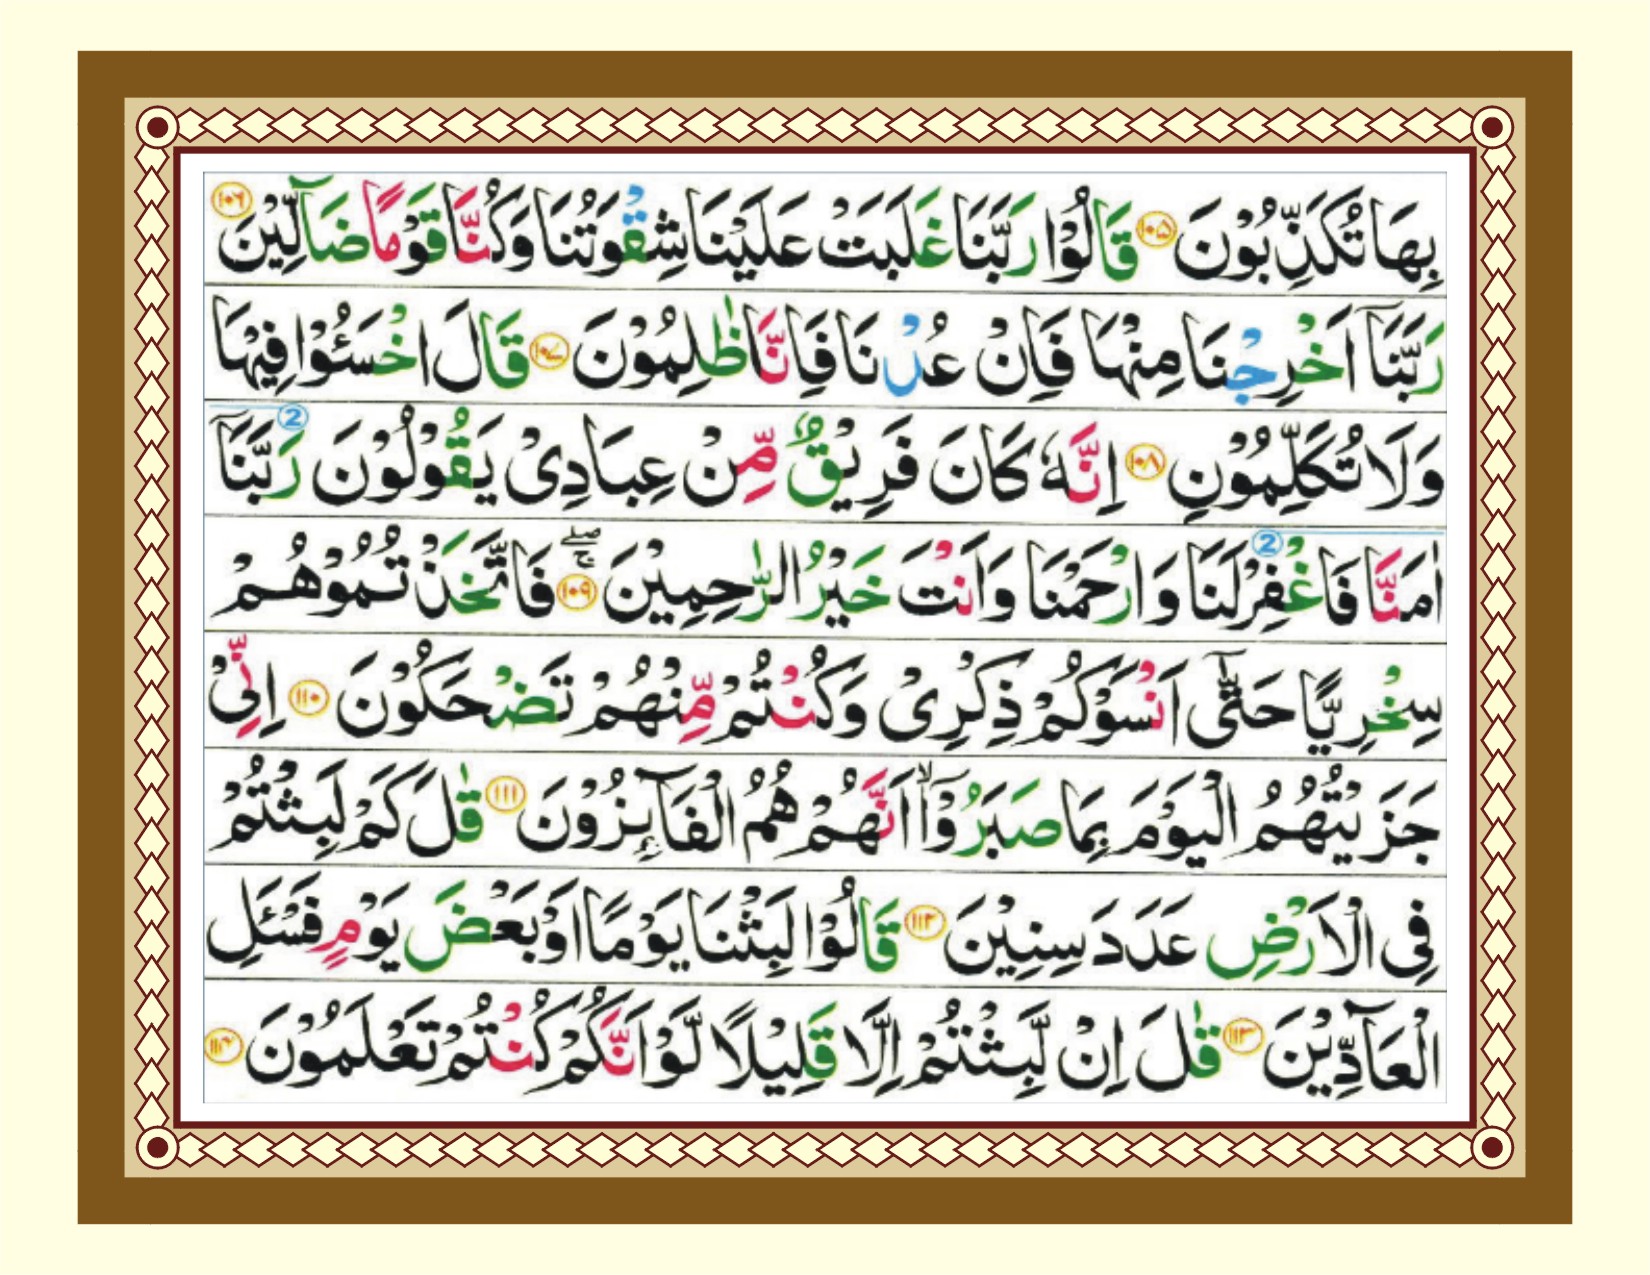 بِهَا تُكَذِّبُوْنَ ۝۱۰۵ قَالُوْا رَبَّنَا غَلَبَتْ عَلَيْنَا شِقْوَتُنَا وَكُنَّا قَوْمًا ضَآلِّيْنَ ۝۱۰۶
رَبَّنَآ اَخْرِجْنَا مِنْهَا فَاِنْ عُدْنَا فَاِنَّا ظٰلِمُوْنَ ۝۱۰۷ قَالَ اخْسَـُٔوْا فِيْهَا
وَلَا تُكَلِّمُوْنِ ۝۱۰۸ اِنَّهٗ كَانَ فَرِيْقٌ مِّنْ عِبَادِىْ يَقُوْلُوْنَ 2 رَبَّنَآ
اٰمَنَّا فَاغْفِرْ 2 لَنَا وَارْحَمْنَا وَاَنْتَ خَيْرُ الرّٰحِمِيْنَ ۝۱۰۹ ۖۚ فَاتَّخَذْتُمُوْهُمْ
سِخْرِيًّا حَتّٰٓى اَنْسَوْكُمْ ذِكْرِىْ وَكُنْتُمْ مِّنْهُمْ تَضْحَكُوْنَ ۝۱۱۰ اِنِّىْ
جَزَيْتُهُمُ الْيَوْمَ بِمَا صَبَرُوْٓا ۙ اَنَّهُمْ هُمُ الْفَآئِزُوْنَ ۝۱۱۱ قٰلَ كَمْ لَبِثْتُمْ
فِى الْاَرْضِ عَدَدَ سِنِيْنَ ۝۱۱۲ قَالُوْا لَبِثْنَا يَوْمًا اَوْ بَعْضَ يَوْمٍ فَسْـَٔلِ
الْعَآدِّيْنَ ۝۱۱۳ قٰلَ اِنْ لَّبِثْتُمْ اِلَّا قَلِيْلًا لَّوْ اَنَّكُمْ كُنْتُمْ تَعْلَمُوْنَ ۝۱۱۴